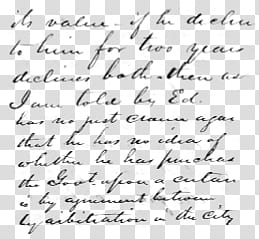 its value - if he decline
to him for two years
declines both - then as
I am told by Ed.
has no just claim agai
that he has no idea of
whether he has purchas
the Govt. upon a certain
is by agreement between
by arbitration in the City